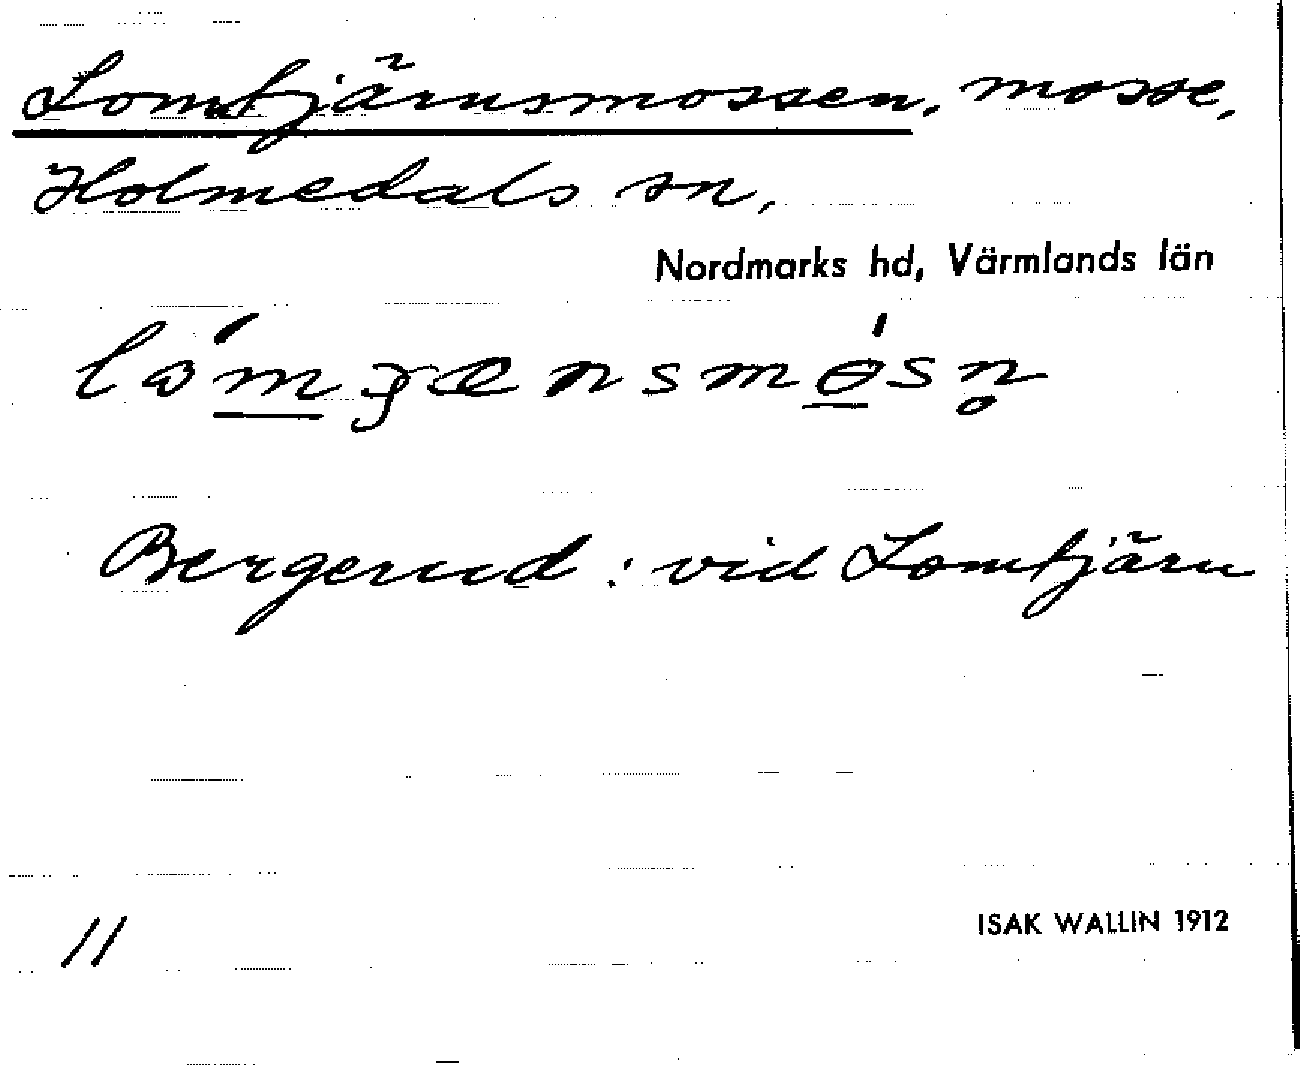 Lomtjärnsmossen, mosse,
Holmedals sn,
Nordmarks hd, Värmlands län
Bergerud: vid Lomtjärn
11
ISAK WALLIN 1912